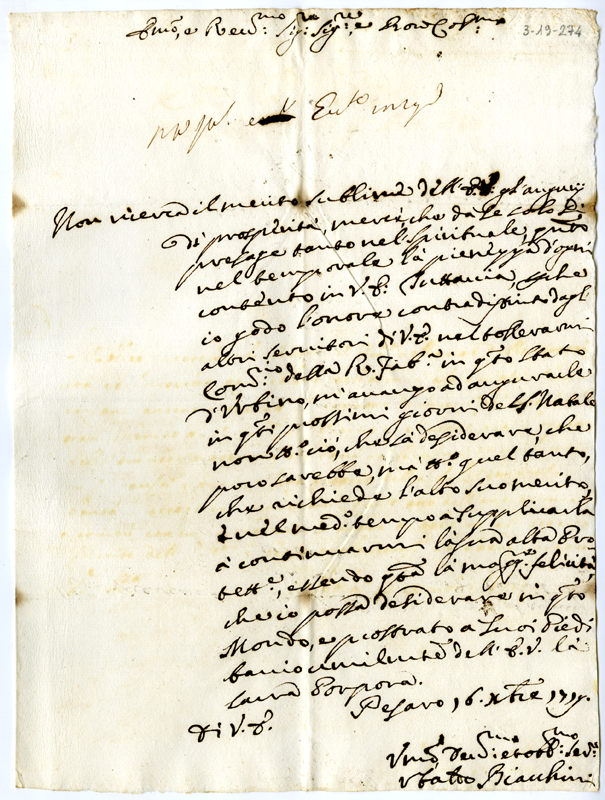 Emo, e Revmo: Sigr: Sigr, e Pron Colmo:
3-19-274
Non ricerca il merito sublime dell'E.V. gl'augurij
di prosperità, mercè che da se solo Li
presage tanto nel spirituale, qnto
nel temporale la pienezza d'ogni
contento in V. E. Tuttavia, che
io godo l'onore contradistinto dagli
altri servitori di V. E. nel
Commo della R. Fabca in qsto Stato
d'Urbino, m'avanzo ad augurarle
in qsti prossimi giorni del S. Natale
non tto ciò, che sà desiderare, che
poco sarebbe, mà tto quel tanto,
che richiede l'alto suo merito,
e nel medo tempo a supplicarla
à continuarmi la sua alta Pro
tettne, essendo qsta la magge felicità,
che io possa desiderare in qsto
Mondo, e prostrato a suoi Piedi
bacio umilmte dell'E. V. la
sacra Porpora.
Pesaro 16. Xbre 1717.
Di V. E.
Umo Devmo: et obbmo: Servre
Ubaldo Biacchini